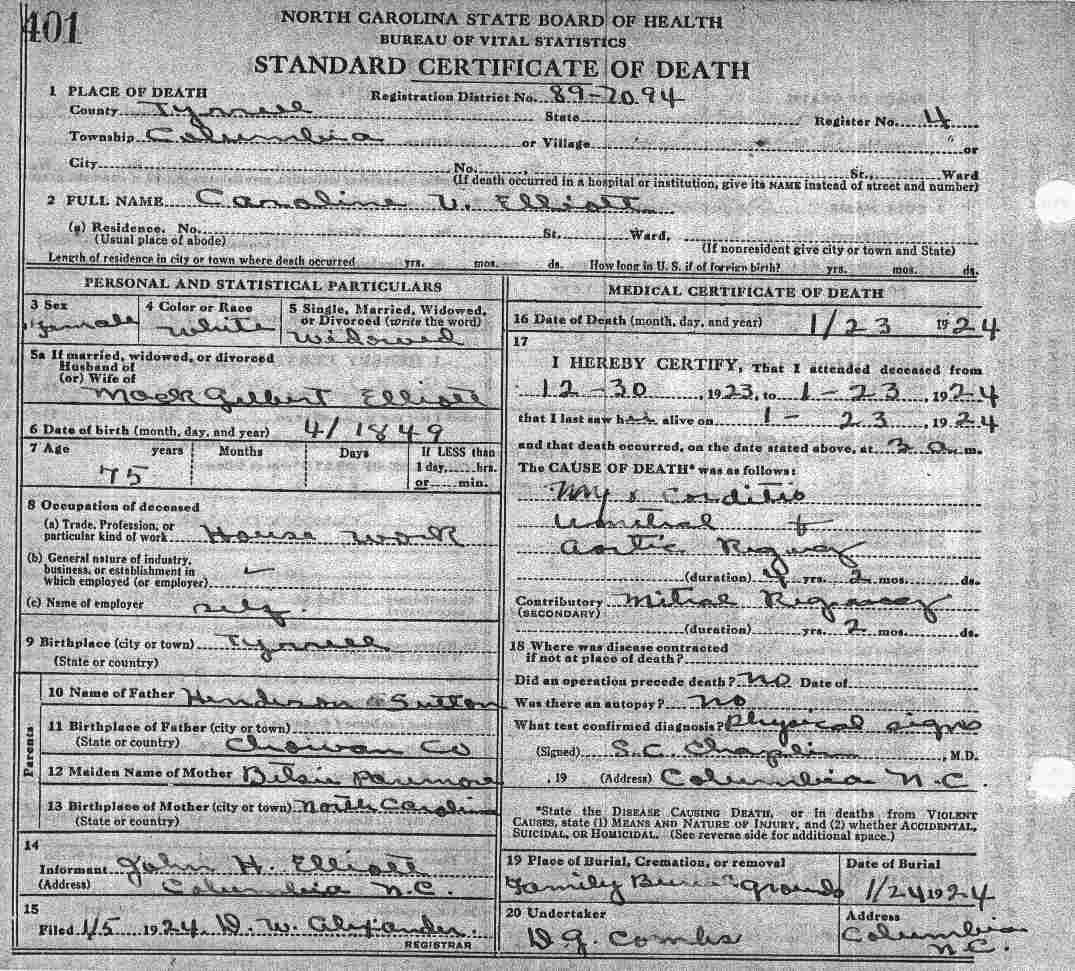 401
NORTH CAROLINA STATE BOARD OF HEALTH
BUREAU OF VITAL STATISTICS
STANDARD CERTIFICATE OF DEATH
1 PLACE OF DEATH Registration District No. 89-7094
County Tyrrell State Register No. 4
Township Columbia or Village or
City No. St., Ward
(If death occurred in a hospital or institution, give its NAME instead of street and number)
2 FULL NAME Caroline V. Elliott
(a) Residence. No. St. Ward,
(Usual place of abode) (If nonresident give city or town and State)
Length of residence in city or town where death occurred yrs. mos. ds. How long in U. S. if of foreign birth? yrs. mos. ds.
PERSONAL AND STATISTICAL PARTICULARS
3 Sex 4 Color or Race 5 Single, Married, Widowed,
or Divorced (write the word)
Female White Widowed
5a If married, widowed, or divorced
Husband of
(or) Wife of
Mack Gilbert Elliott
6 Date of birth (month, day, and year) 4/1849
7 Age years Months Days If LESS than
1 day, hrs.
or min.
75
8 Occupation of deceased
(a) Trade, Profession, or
particular kind of work House work
(b) General nature of industry,
business, or establishment in
which employed (or employer)
(c) Name of employer self.
9 Birthplace (city or town) Tyrrell
(State or country)
Parents
10 Name of Father Henderson Sutton
11 Birthplace of Father (city or town)
(State or country) Chowan Co
12 Maiden Name of Mother Betsie
13 Birthplace of Mother (city or town) North Carolina
(State or country)
14
Informant John H. Elliott
(Address) Columbia N.C.
15
Filed 1/5 1924. D. W. Alexander
REGISTRAR
MEDICAL CERTIFICATE OF DEATH
16 Date of Death (month, day, and year) 1/23 1924
17
I HEREBY CERTIFY, That I attended deceased from
12-30, 1923, to 1-23, 1924
that I last saw her alive on 1-23, 1924
and that death occurred, on the date stated above, at 3 a. m.
The CAUSE OF DEATH* was as follows:
Aortic
(duration) yrs. 2 mos. ds.
Contributory Mitral
(SECONDARY)
(duration) yrs. 2 mos. ds.
18 Where was disease contracted
if not at place of death?
Did an operation precede death? No Date of
Was there an autopsy? No
What test confirmed diagnosis? Physical signs
(Signed) S.C. Chaplin, M.D.
, 19 (Address) Columbia N.C.
*State the DISEASE CAUSING DEATH, or in deaths from VIOLENT
CAUSES, state (1) MEANS AND NATURE OF INJURY, and (2) whether ACCIDENTAL,
SUICIDAL, OR HOMICIDAL. (See reverse side for additional space.)
19 Place of Burial, Cremation, or removal Date of Burial
Family grounds 1/24 1924
20 Undertaker Address
D G. Combs Columbia
N.C.